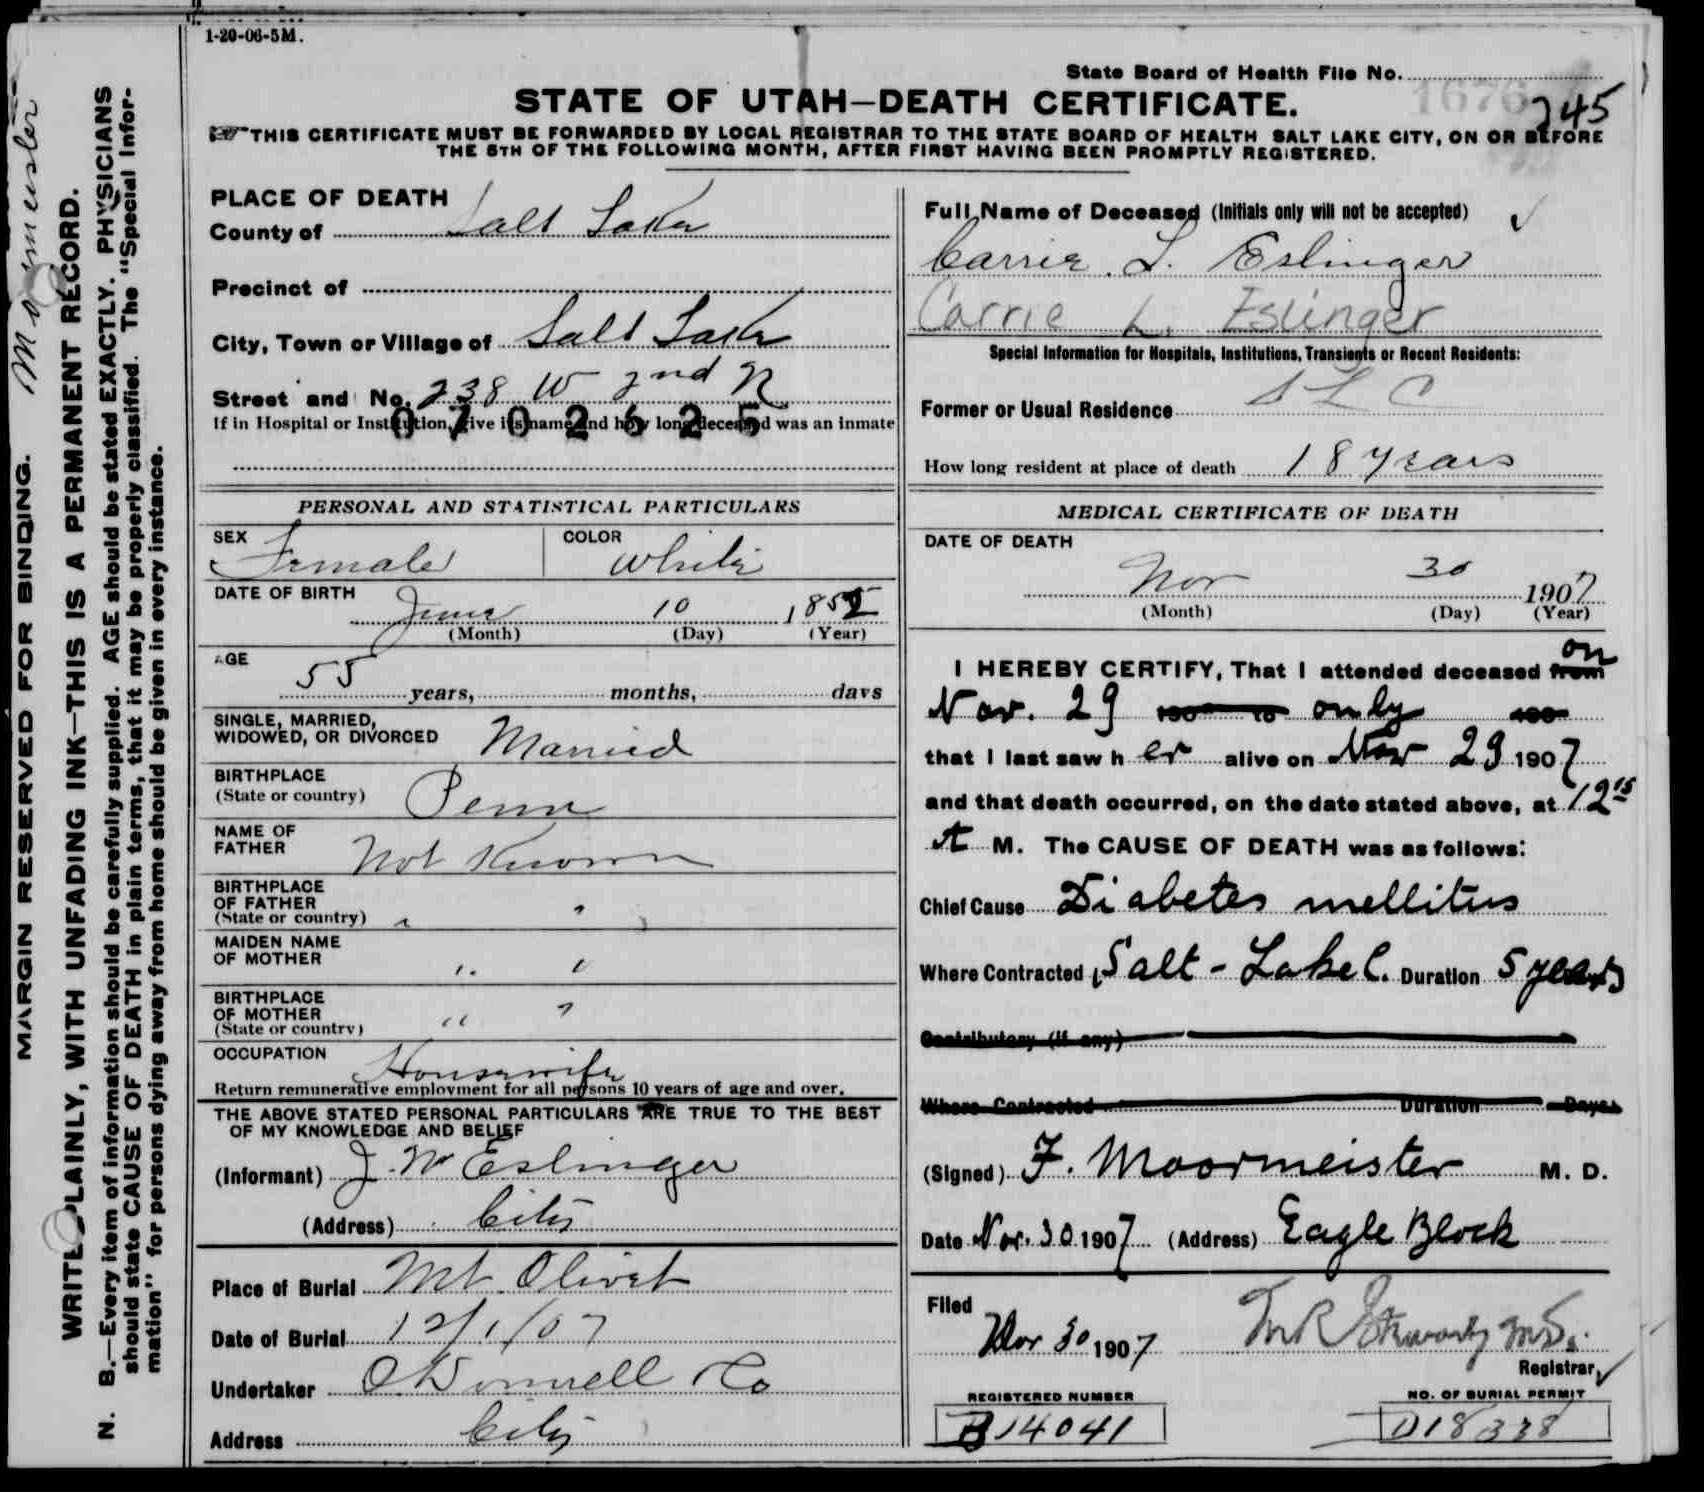 1-20-06-5M.
State Board of Health File No. 1676
245
STATE OF UTAH—DEATH CERTIFICATE.
THIS CERTIFICATE MUST BE FORWARDED BY LOCAL REGISTRAR TO THE STATE BOARD OF HEALTH SALT LAKE CITY, ON OR BEFORE
THE 5TH OF THE FOLLOWING MONTH, AFTER FIRST HAVING BEEN PROMPTLY REGISTERED.
MARGIN RESERVED FOR BINDING.
WRITE PLAINLY, WITH UNFADING INK—THIS IS A PERMANENT RECORD.
N. B.—Every item of information should be carefully supplied. AGE should be stated EXACTLY. PHYSICIANS
should state CAUSE OF DEATH in plain terms, that it may be properly classified. The "Special Infor-
mation" for persons dying away from home should be given in every instance.
PLACE OF DEATH
County of Salt Lake
Precinct of
City, Town or Village of Salt Lake
Street and No. 238 W 2nd N
0702625
If in Hospital or Institution, give its name and how long deceased was an inmate
PERSONAL AND STATISTICAL PARTICULARS
SEX Female COLOR White
DATE OF BIRTH June 10 1852
(Month) (Day) (Year)
AGE 55 years, months, days
SINGLE, MARRIED,
WIDOWED, OR DIVORCED Married
BIRTHPLACE
(State or country) Penn
NAME OF
FATHER Not Known
BIRTHPLACE
OF FATHER
(State or country) " "
MAIDEN NAME
OF MOTHER " "
BIRTHPLACE
OF MOTHER
(State or country) " "
OCCUPATION Housewife
Return remunerative employment for all persons 10 years of age and over.
THE ABOVE STATED PERSONAL PARTICULARS ARE TRUE TO THE BEST
OF MY KNOWLEDGE AND BELIEF
(Informant) J. W Eslinger
(Address) City
Place of Burial Mt. Olivet
Date of Burial 12/1/07
Undertaker O'Donnell & Co
Address City
Full Name of Deceased (Initials only will not be accepted)
Carrie L. Eslinger
Carrie L. Eslinger
Special Information for Hospitals, Institutions, Transients or Recent Residents:
Former or Usual Residence S L C
How long resident at place of death 18 years
MEDICAL CERTIFICATE OF DEATH
DATE OF DEATH
Nov 30 1907
(Month) (Day) (Year)
I HEREBY CERTIFY, That I attended deceased from on
Nov. 29 190 to only 190
that I last saw her alive on Nov 29 1907
and that death occurred, on the date stated above, at 12 15
A M. The CAUSE OF DEATH was as follows:
Chief Cause Diabetes mellitus
Where Contracted Salt-Lake C. Duration 5 years
Contributory (if any)
Where Contracted Duration Days
(Signed) F. Moormeister M. D.
Date Nov. 30 1907 (Address) Eagle Block
Filed
Nov 30 1907
Registrar
REGISTERED NUMBER
B14041
NO. OF BURIAL PERMIT
D18338